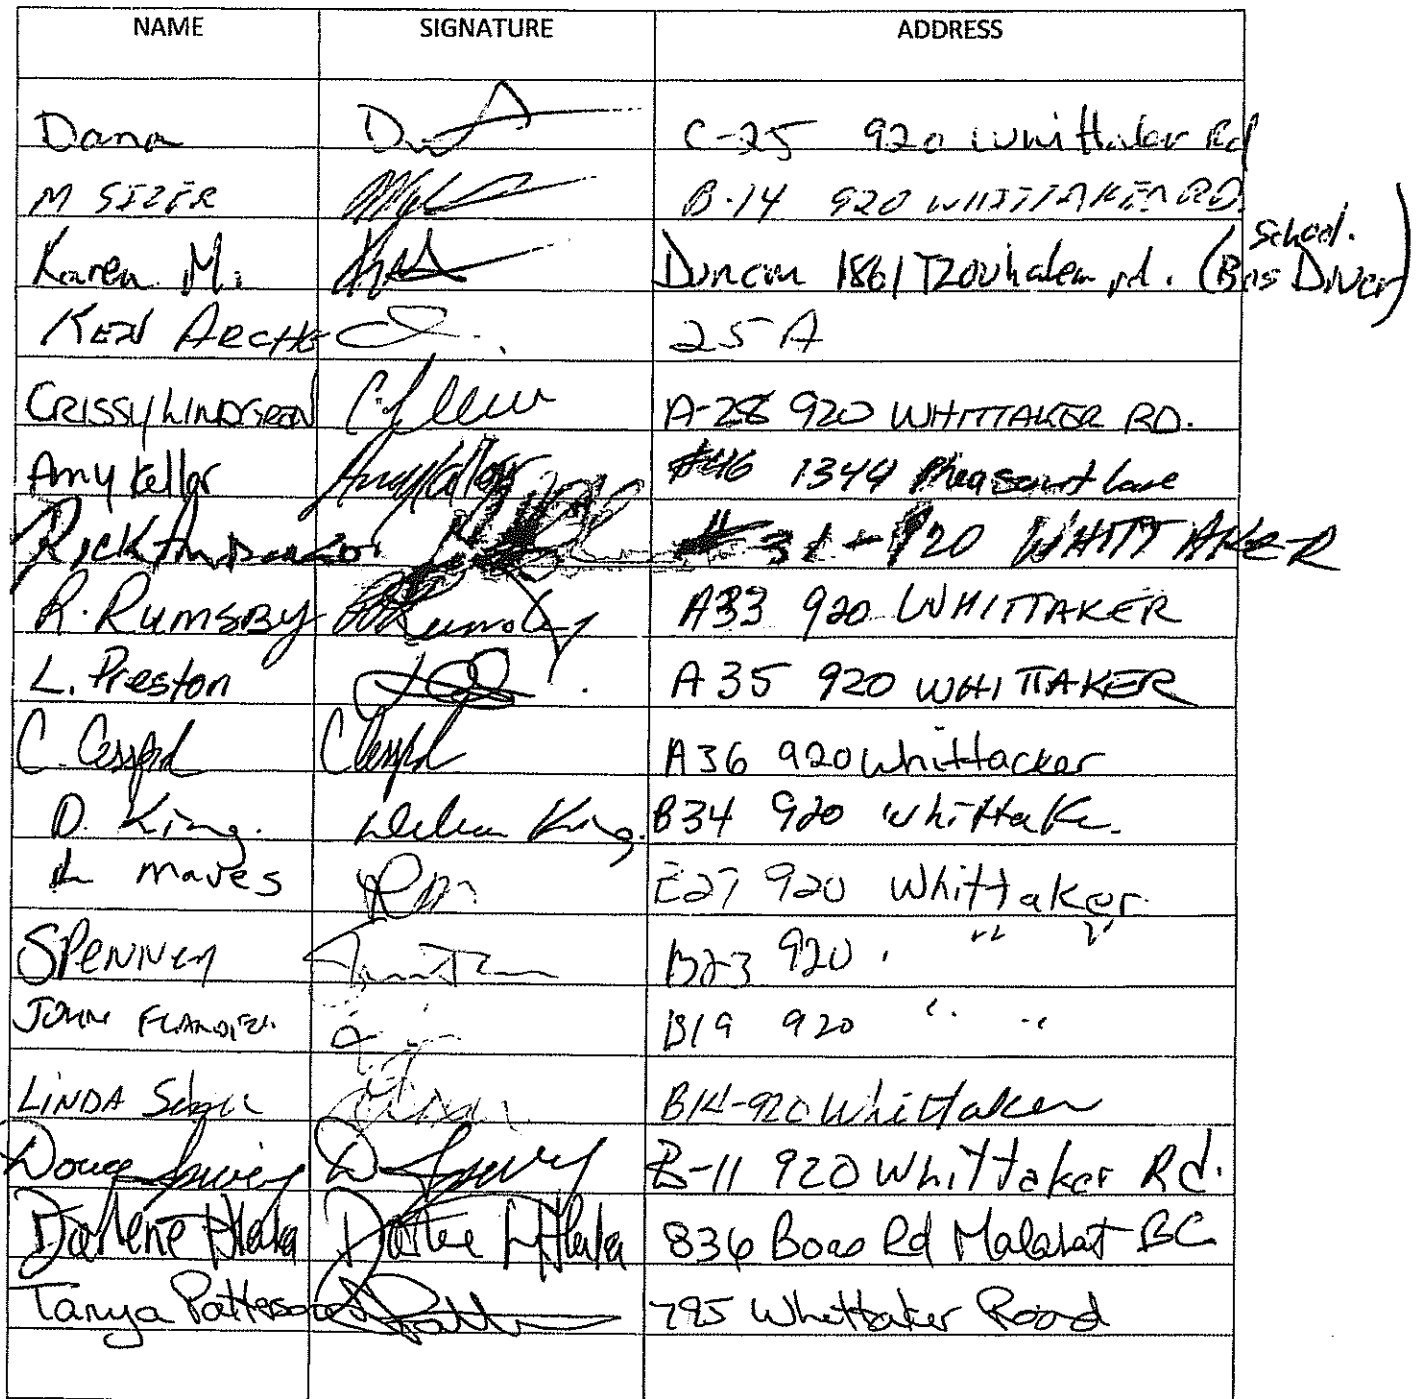 NAME SIGNATURE ADDRESS
Dana C-25 920 Whittaker Rd
M SIZER B-14 920 WHITTAKER RD.
Karen M. Duncan 1861 Tzouhalem rd. (School. Bus Driver)
KEN ARCHE 25 A
CRISSY LINDGREN A-28 920 WHITTAKER RD.
Amy Kellor Amy Kellor #46 1344 Pheasant Lane
Rick #31-920 WHITTAKER
R. RUMSBY R Rumsby A33 920 WHITTAKER
L. Preston A 35 920 WHITTAKER
C. A36 920 Whittacker
D. King. King. B34 920 Whittake.
L Maves E27 920 Whittaker
B23 920 . " "
JOHN B19 920 " "
LINDA B14-920 Whittaker
Doug B-11 920 Whittaker Rd.
Darlene Hlaka Darlene Hlaka 836 Boas Rd Malahat BC
Tanya Patterson 795 Whittaker Road